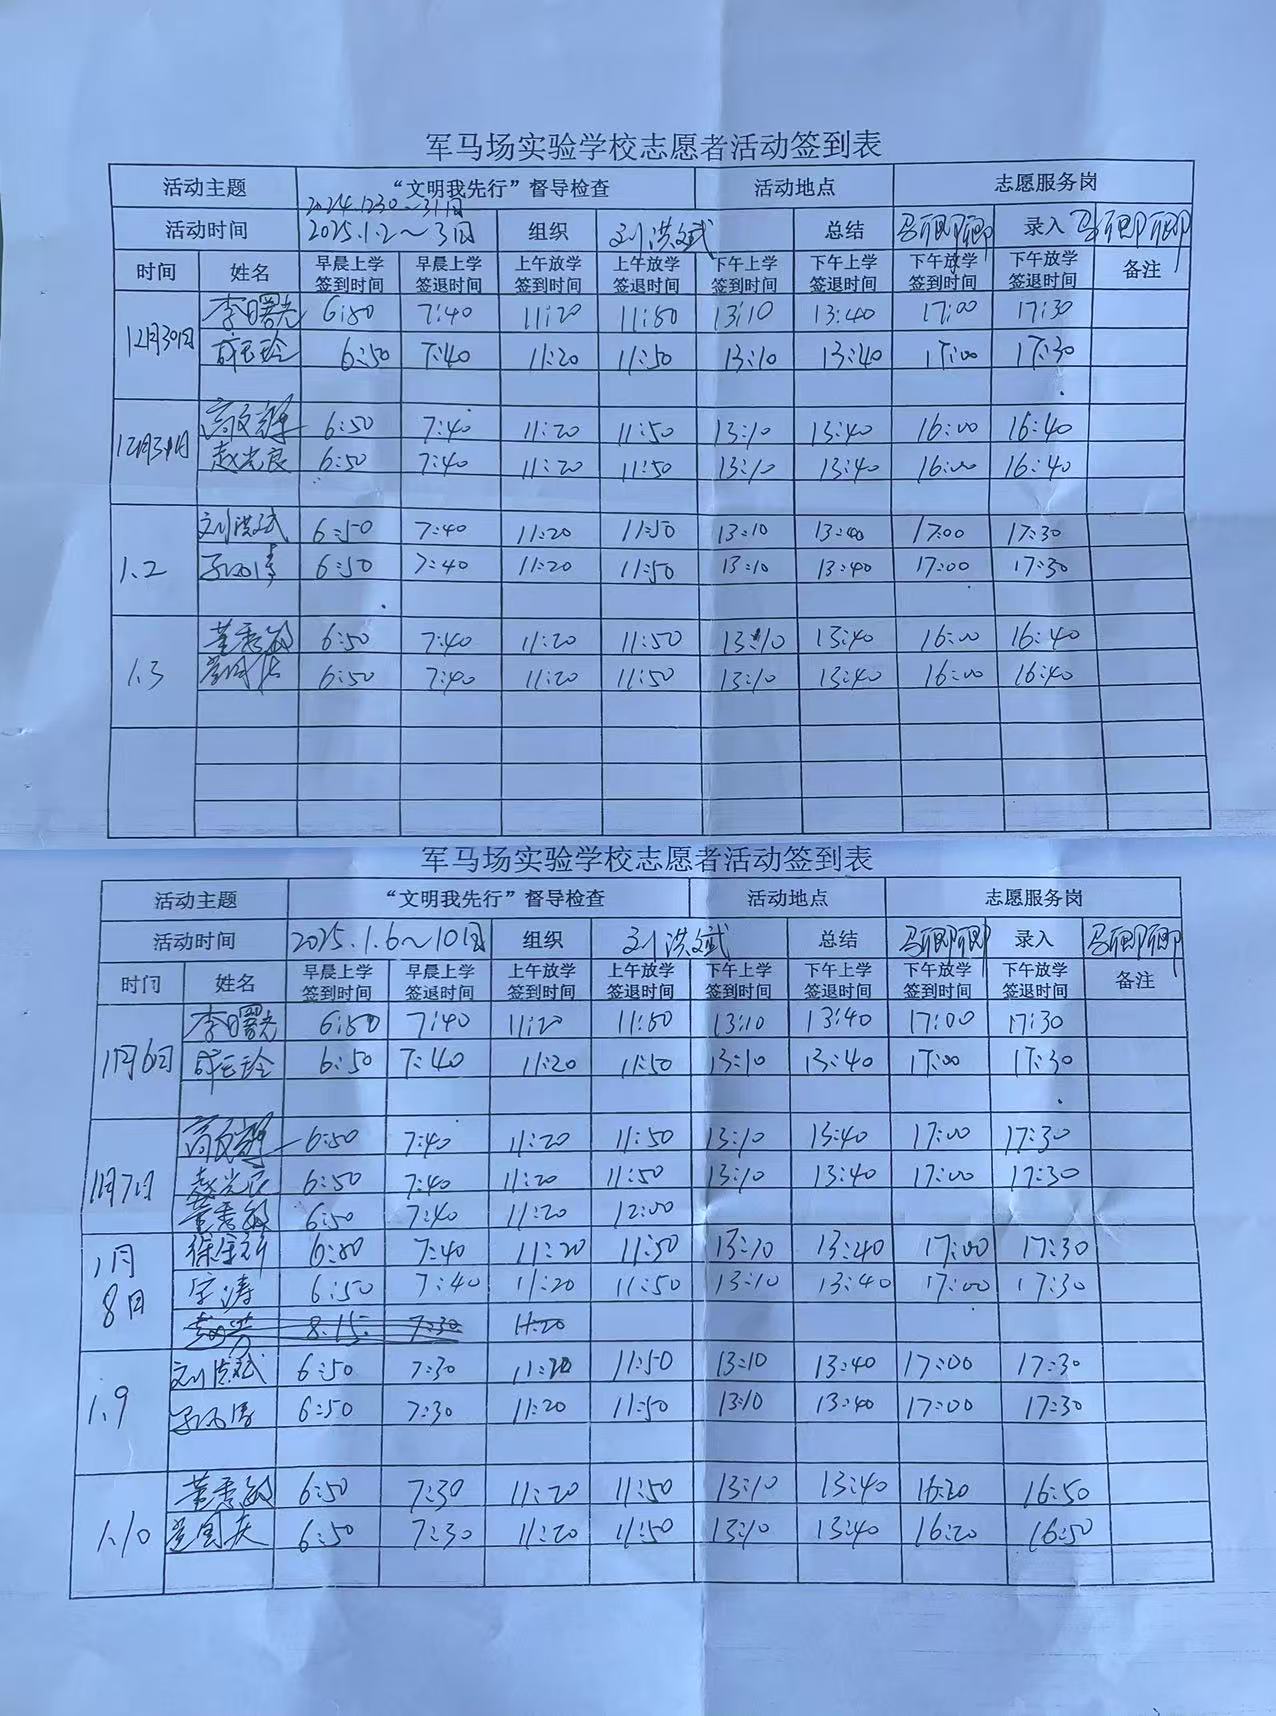 军马场实验学校志愿者活动签到表
活动主题 “文明我先行”督导检查 活动地点 志愿服务岗
2024.12.30～31日
活动时间 2025.1.2～3日 组织 刘洪斌 总结 录入
时间 姓名 早晨上学签到时间 早晨上学签退时间 上午放学签到时间 上午放学签退时间 下午上学签到时间 下午上学签退时间 下午放学签到时间 下午放学签退时间 备注
12月30日 李曙光 6:50 7:40 11:20 11:50 13:10 13:40 17:00 17:30
6:50 7:40 11:20 11:50 13:10 13:40 17:00 17:30
12月31日 6:50 7:40 11:20 11:50 13:10 13:40 16:00 16:40
赵光良 6:50 7:40 11:20 11:50 13:10 13:40 16:00 16:40
1.2 刘洪斌 6:50 7:40 11:20 11:50 13:10 13:40 17:00 17:30
6:50 7:40 11:20 11:50 13:10 13:40 17:00 17:30
1.3 董秀敏 6:50 7:40 11:20 11:50 13:10 13:40 16:00 16:40
6:50 7:40 11:20 11:50 13:10 13:40 16:00 16:40
军马场实验学校志愿者活动签到表
活动主题 “文明我先行”督导检查 活动地点 志愿服务岗
活动时间 2025.1.6～10日 组织 刘洪斌 总结 录入
时间 姓名 早晨上学签到时间 早晨上学签退时间 上午放学签到时间 上午放学签退时间 下午上学签到时间 下午上学签退时间 下午放学签到时间 下午放学签退时间 备注
1月6日 李曙光 6:50 7:40 11:20 11:50 13:10 13:40 17:00 17:30
6:50 7:40 11:20 11:50 13:10 13:40 17:00 17:30
1月7日 6:50 7:40 11:20 11:50 13:10 13:40 17:00 17:30
赵光良 6:50 7:40 11:20 11:50 13:10 13:40 17:00 17:30
董秀敏 6:50 7:40 11:20 12:00
1月8日 6:50 7:40 11:20 11:50 13:10 13:40 17:00 17:30
宋涛 6:50 7:40 11:20 11:50 13:10 13:40 17:00 17:30
8:15 7:30 11:20
1.9 刘洪斌 6:50 7:30 11:20 11:50 13:10 13:40 17:00 17:30
6:50 7:30 11:20 11:50 13:10 13:40 17:00 17:30
1.10 董秀敏 6:50 7:30 11:20 11:50 13:10 13:40 16:20 16:50
6:50 7:30 11:20 11:50 13:10 13:40 16:20 16:50